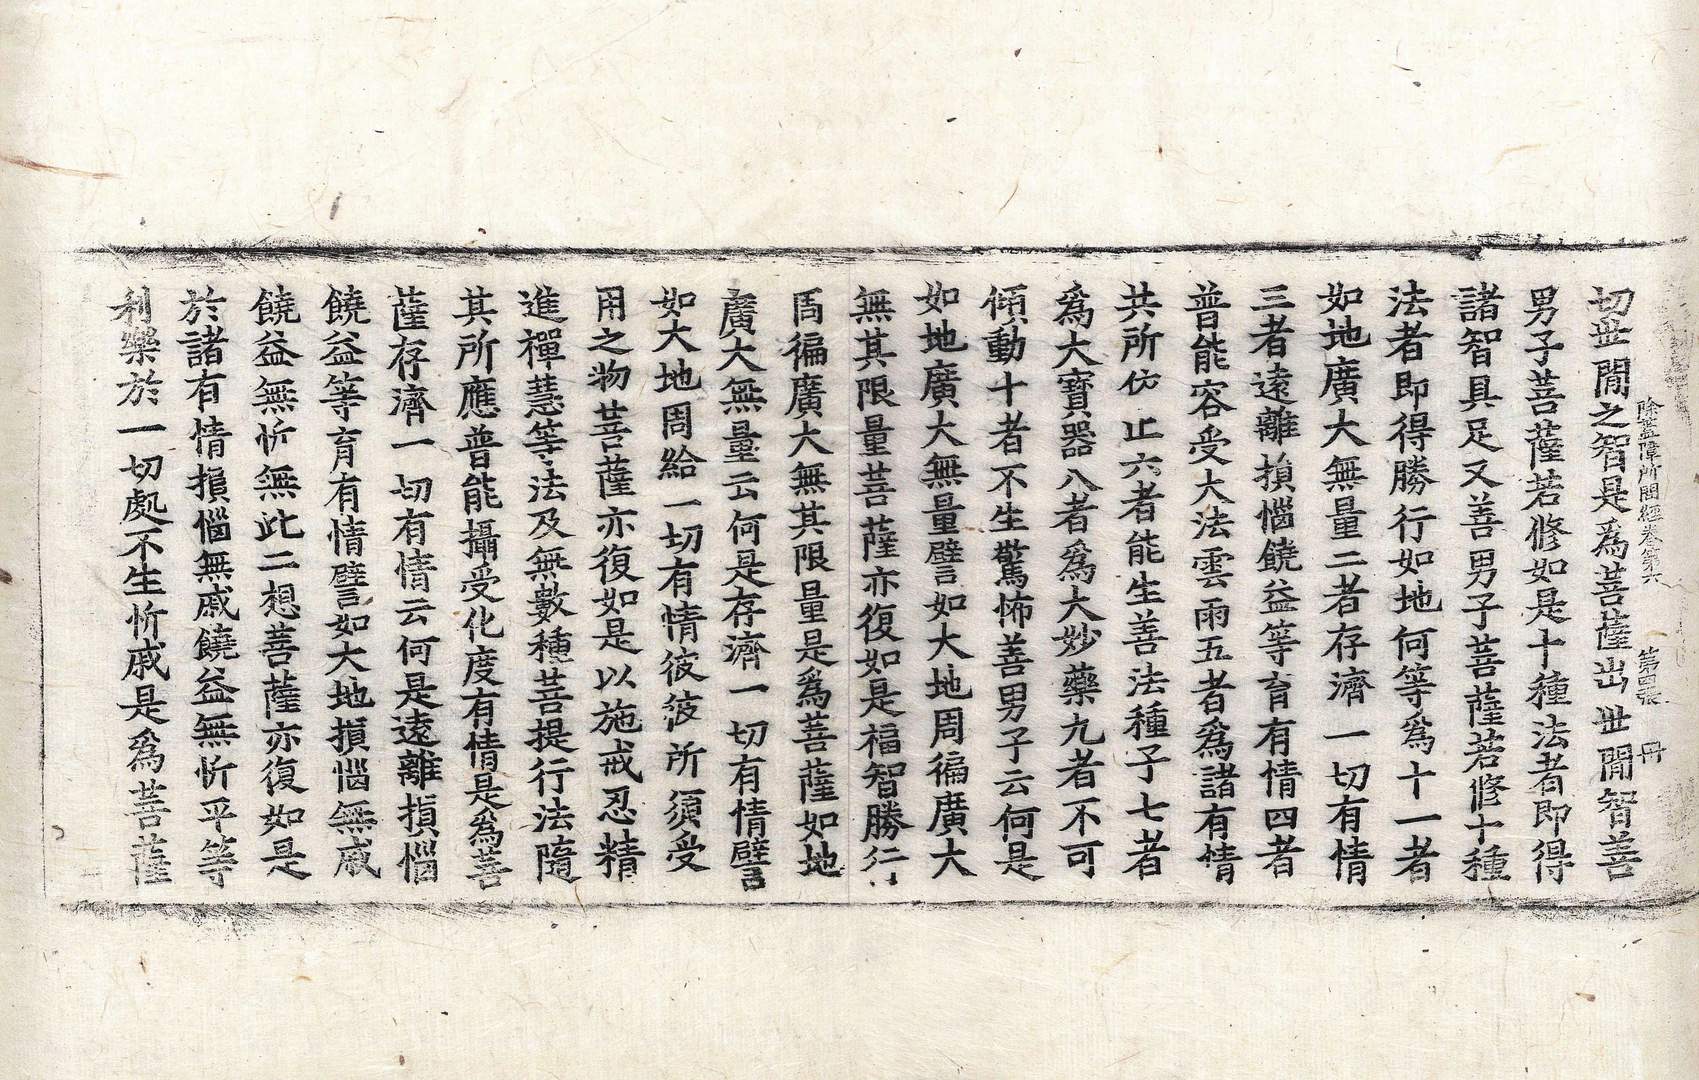 除蓋障所問經卷第六 第四張 冊
切世閒之智是爲菩薩出世閒智善
男子菩薩若修如是十種法者即得
諸智具足又善男子菩薩若修十種
法者即得勝行如地何等爲十一者
如地廣大無量二者存濟一切有情
三者遠離損惱饒益等育有情四者
普能容受大法雲雨五者爲諸有情
共所依止六者能生善法種子七者
爲大寶器八者爲大妙藥九者不可
傾動十者不生驚怖善男子云何是
如地廣大無量譬如大地周徧廣大
無其限量菩薩亦復如是福智勝行
周徧廣大無其限量是爲菩薩如地
廣大無量云何是存濟一切有情譬
如大地周給一切有情彼彼所須受
用之物菩薩亦復如是以施戒忍精
進禪慧等法及無數種菩提行法隨
其所應普能攝受化度有情是爲菩
薩存濟一切有情云何是遠離損惱
饒益等育有情譬如大地損惱無慼
饒益無忻無此二想菩薩亦復如是
於諸有情損惱無慼饒益無忻平等
利樂於一切處不生忻慼是爲菩薩